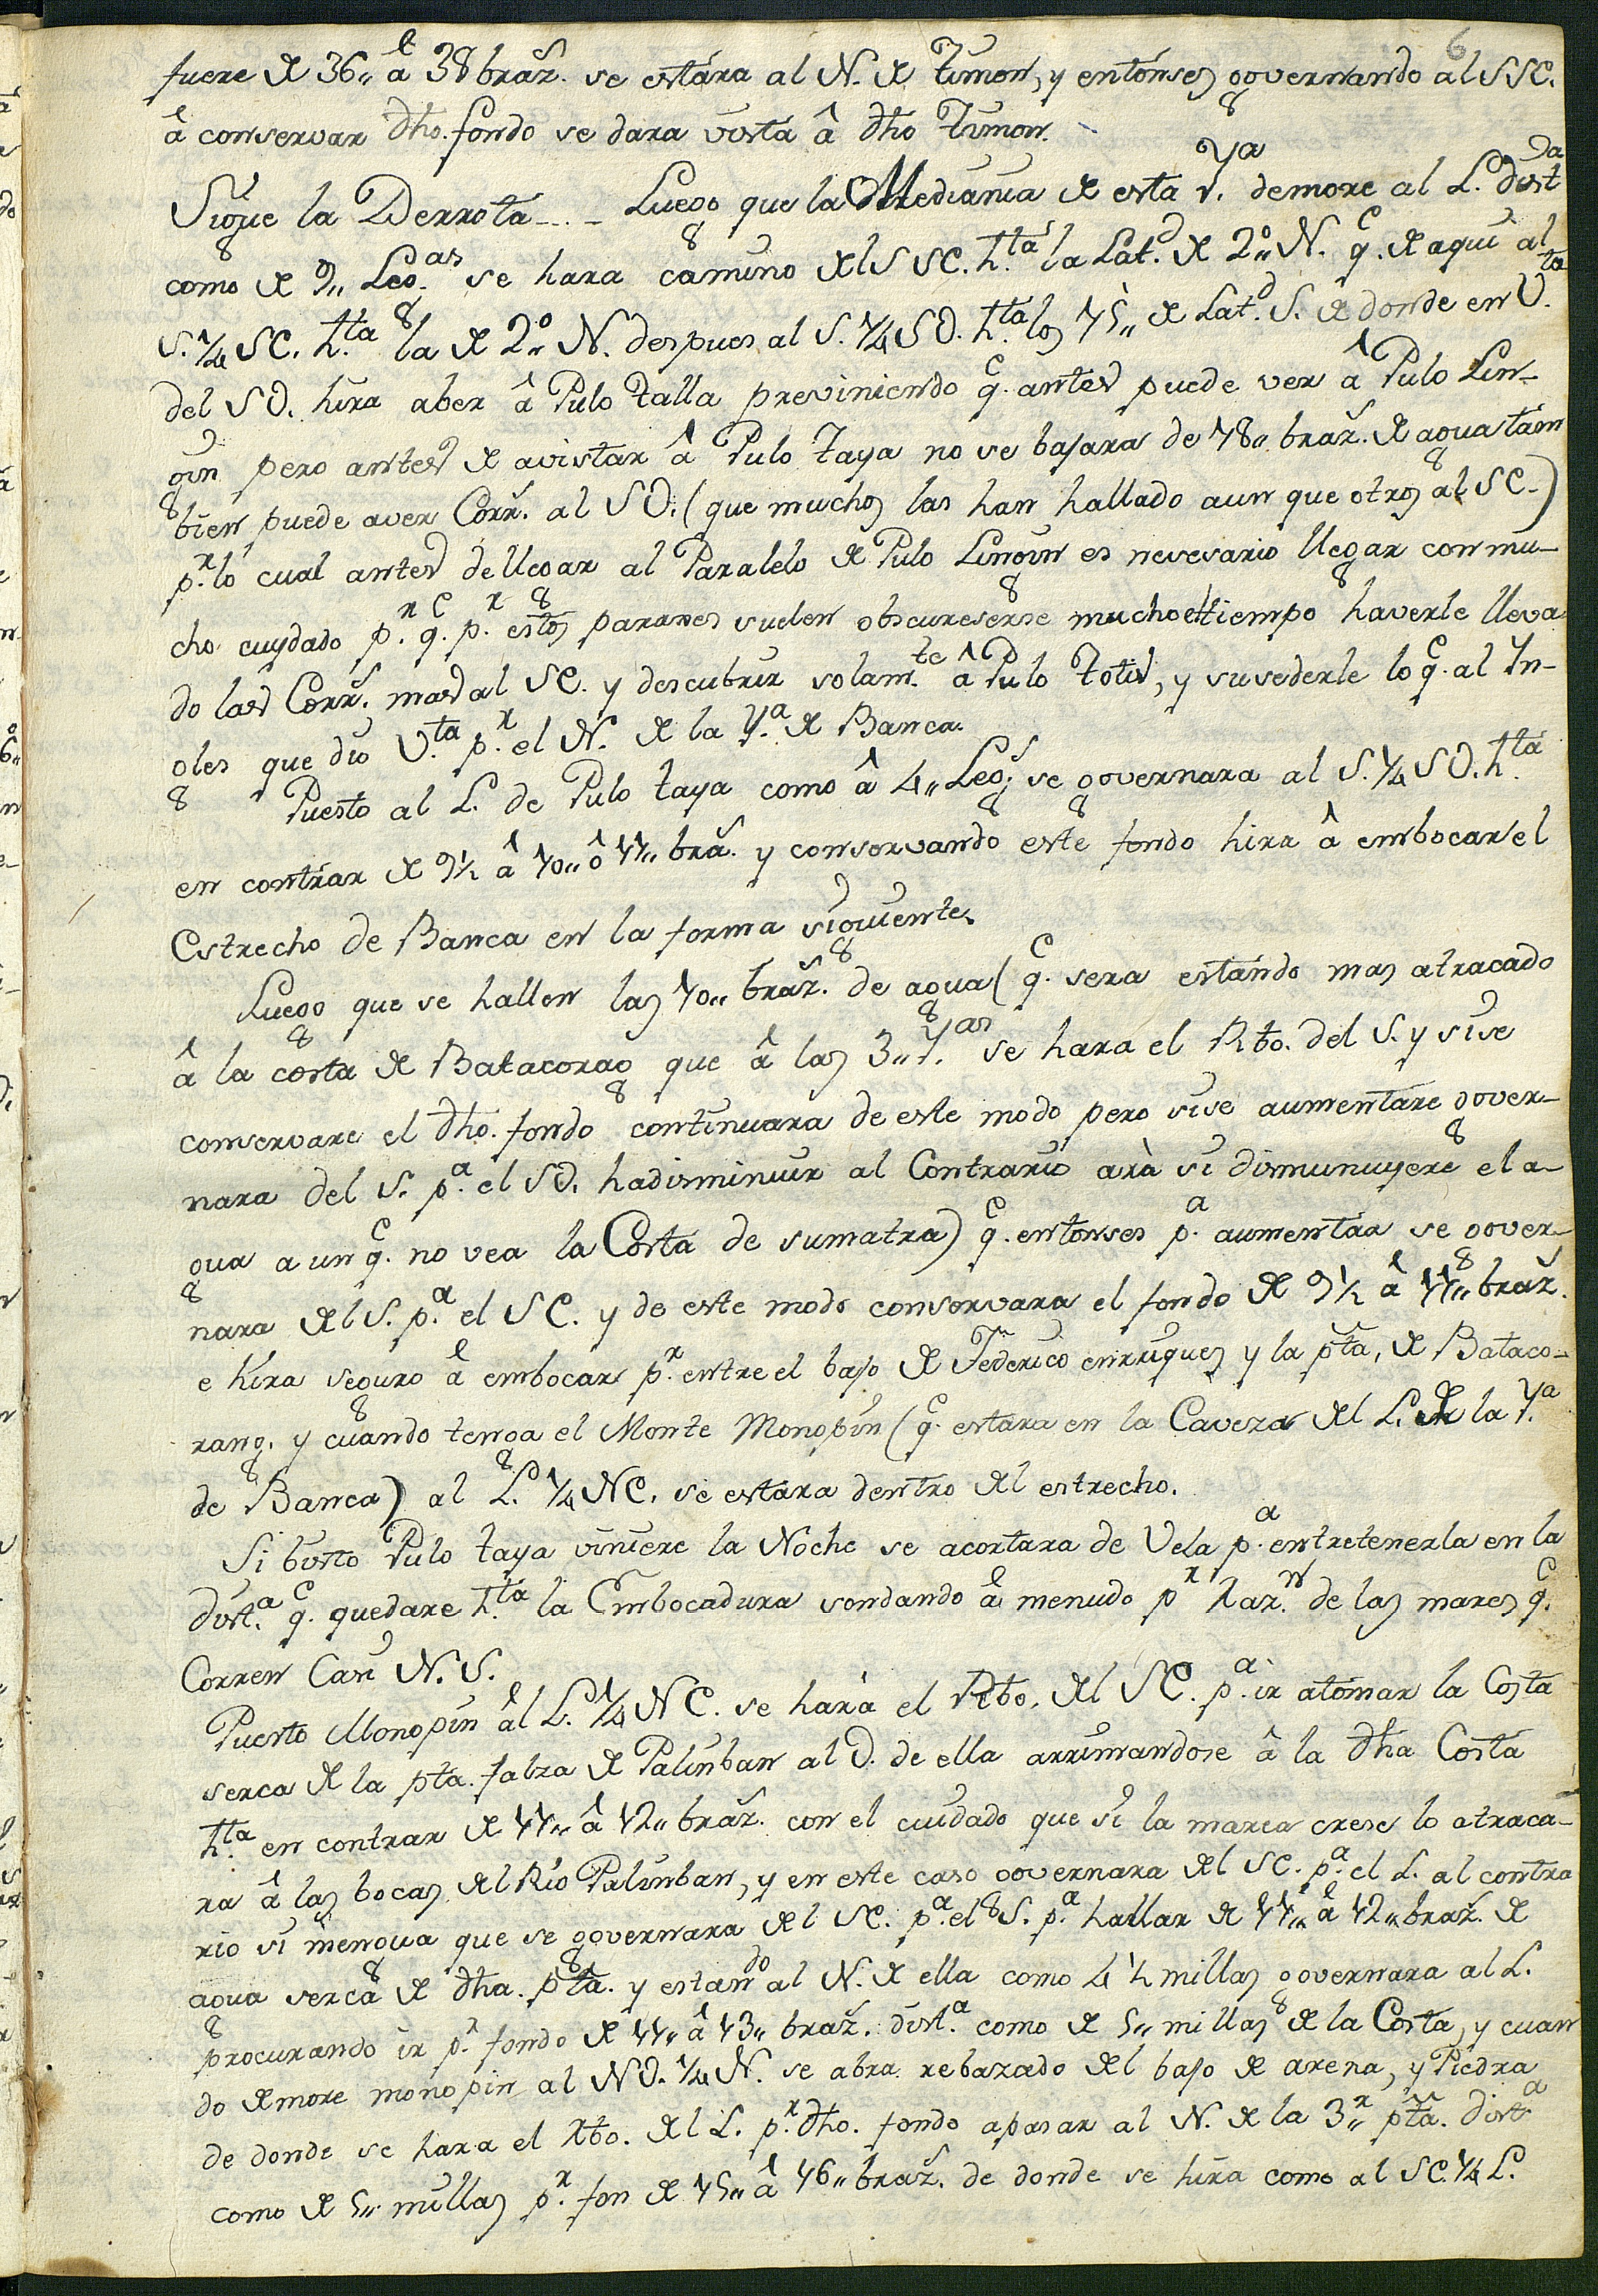 6
fuere de 36,, â 38 braz.s se estára al N. de Timon, y entónses governando al SSE.
â conservar dho. fondo se dara vista â dho Timon.
Sigue la Derrota - - - Luego que la Mediania de esta Y.a demore al L. dist.da
como de 9,, Leg.as se hara camino del SSE. h.ta la Lat.d de 2°,, N. q.e de aqui al
S. 1/4 SE. h.ta la de 2°,, N. despues al S. 1/4 SO. h.ta los 15,, de Lat.d S. de donde en V.ta
del SO. hira aber â Pulo talla previniendo q.e antes puede ver â Pulo Lin-
gin pero antes de avistar â Pulo Taya no se bajara de 18,, braz.s de agua tam
bien puede aver Corr.s al SO. (que muchos las han hallado aun que otros al SE.)
p.r lo cual antes de llegar al Paralelo de Pulo Lingin es nesesario llegar con mu-
cho cuydado p.r q.e p.r estos parajes suelen obscureserse mucho el tiempo haverle lleva
do las Corr.s mas al SE. y descubrir solam.te â Pulo Totis, y susederle lo q.e al In-
gles que dio V.ta p.r el N. de la Y.a de Banca.
Puesto al L. de Pulo taya como â 4,, Leg.s se governara al S. 1/4 SO. h.ta
en contrar de 9 1/2 â 10,, ô 11,, bra.s y conservando este fondo hira â embocar el
Estrecho de Banca en la forma siguiente.
Luego que se hallen las 10,, braz.s de agua (q.e sera estando mas atracado
â la costa de Batacorag que â las 3,, Y.as se hara el Rbo. del S. y si se
conservare el dho. fondo continuara de este modo pero si se aumentare gover-
nara del S. p.a el SO. ha disminuir al Contrario arà si dismunuyere el a-
gua a un q.e no vea la Costa de sumatra) q.e entonses p.a aumentar se gover-
nara del S. p.a el SE. y de este modo conservara el fondo de 9 1/2 â 11,, braz.s
e hira seguro â embocar p.r entre el bajo de Federico enrriques y la pta, de Bataco-
rang. y cuando tenga el Monte Monopin (q.e estara en la Cavezar del L. de la Y.a
de Banca) al L. 1/4 NE. se estara dentro del estrecho.
Si bisto Pulo taya viniere la Noche se acortara de Vela p.a entretenerla en la
dist.a q.e quedare h.ta la Embocadura sondando â menudo p.r raz.n de las mares q.e
Corren Casi N. S.
Puesto Monopin âl L. 1/4 NE. se harà el Rbo. del SE. p.a ir atomar la Costa
serca de la pta. falza de Palinban al O. de ella arrimandose â la dha Costa
h.ta en contrar de 11,, â 12,, braz.s con el cuidado que si la marea crese lo atraca-
ra â las bocas del Rio Palinban, y en este caso governara del SE. p.a el L. al contra
rio si mengua que se governara del SE. p.a el S. p.a hallar de 11,, â 12,, braz.s de
agua serca de dha. pta. y estan.do al N. de ella como 4 1/2 millas governara al L.
procurando ir p.r fondo de 11,, â 13,, braz.s dist.a como de 5,, millas de la Costa, y cuan
do demore monopin al NO. 1/4 N. se abra rebazado del bajo de arena, y Piedra
de donde se hara el rbo. del L. p.r dho. fondo a pasar al N. de la 3.r,, pta. dist.a
como de 5,, millas p.r fon de 15,, â 16,, braz.s de donde se hira como al SE. 1/4 L.